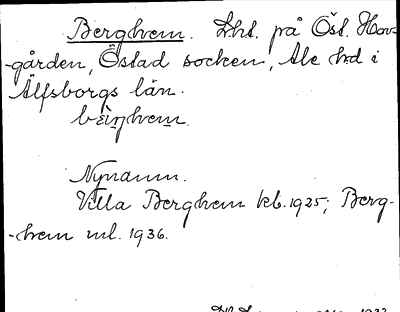 Berghem. Lht. på Öst. Hov-
-gården, Östad socken, Ale hd i
Älfsborgs län.
bæ̀r̹hem.
Nynamn.
Villa Berghem kb. 1925; Berg-
-hem ml. 1936.